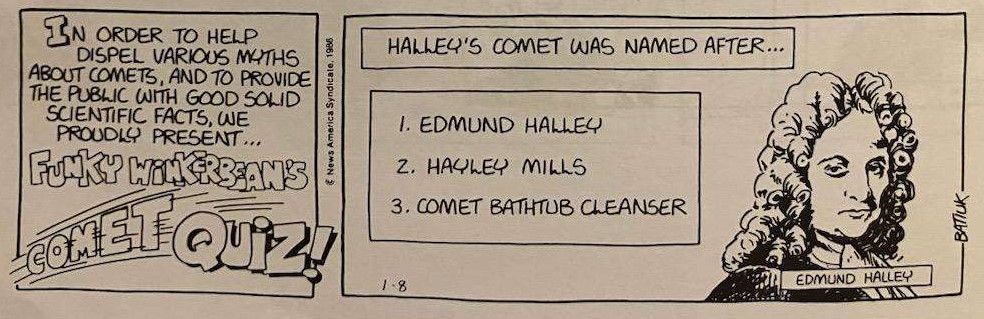 IN ORDER TO HELP
DISPEL VARIOUS MYTHS
ABOUT COMETS, AND TO PROVIDE
THE PUBLIC WITH GOOD SOLID
SCIENTIFIC FACTS, WE
PROUDLY PRESENT...
FUNKY WINKERBEAN'S
COMET QUIZ!
© News America Syndicate, 1986
HALLEY'S COMET WAS NAMED AFTER...
1. EDMUND HALLEY
2. HAYLEY MILLS
3. COMET BATHTUB CLEANSER
1-8
EDMUND HALLEY
BATIUK